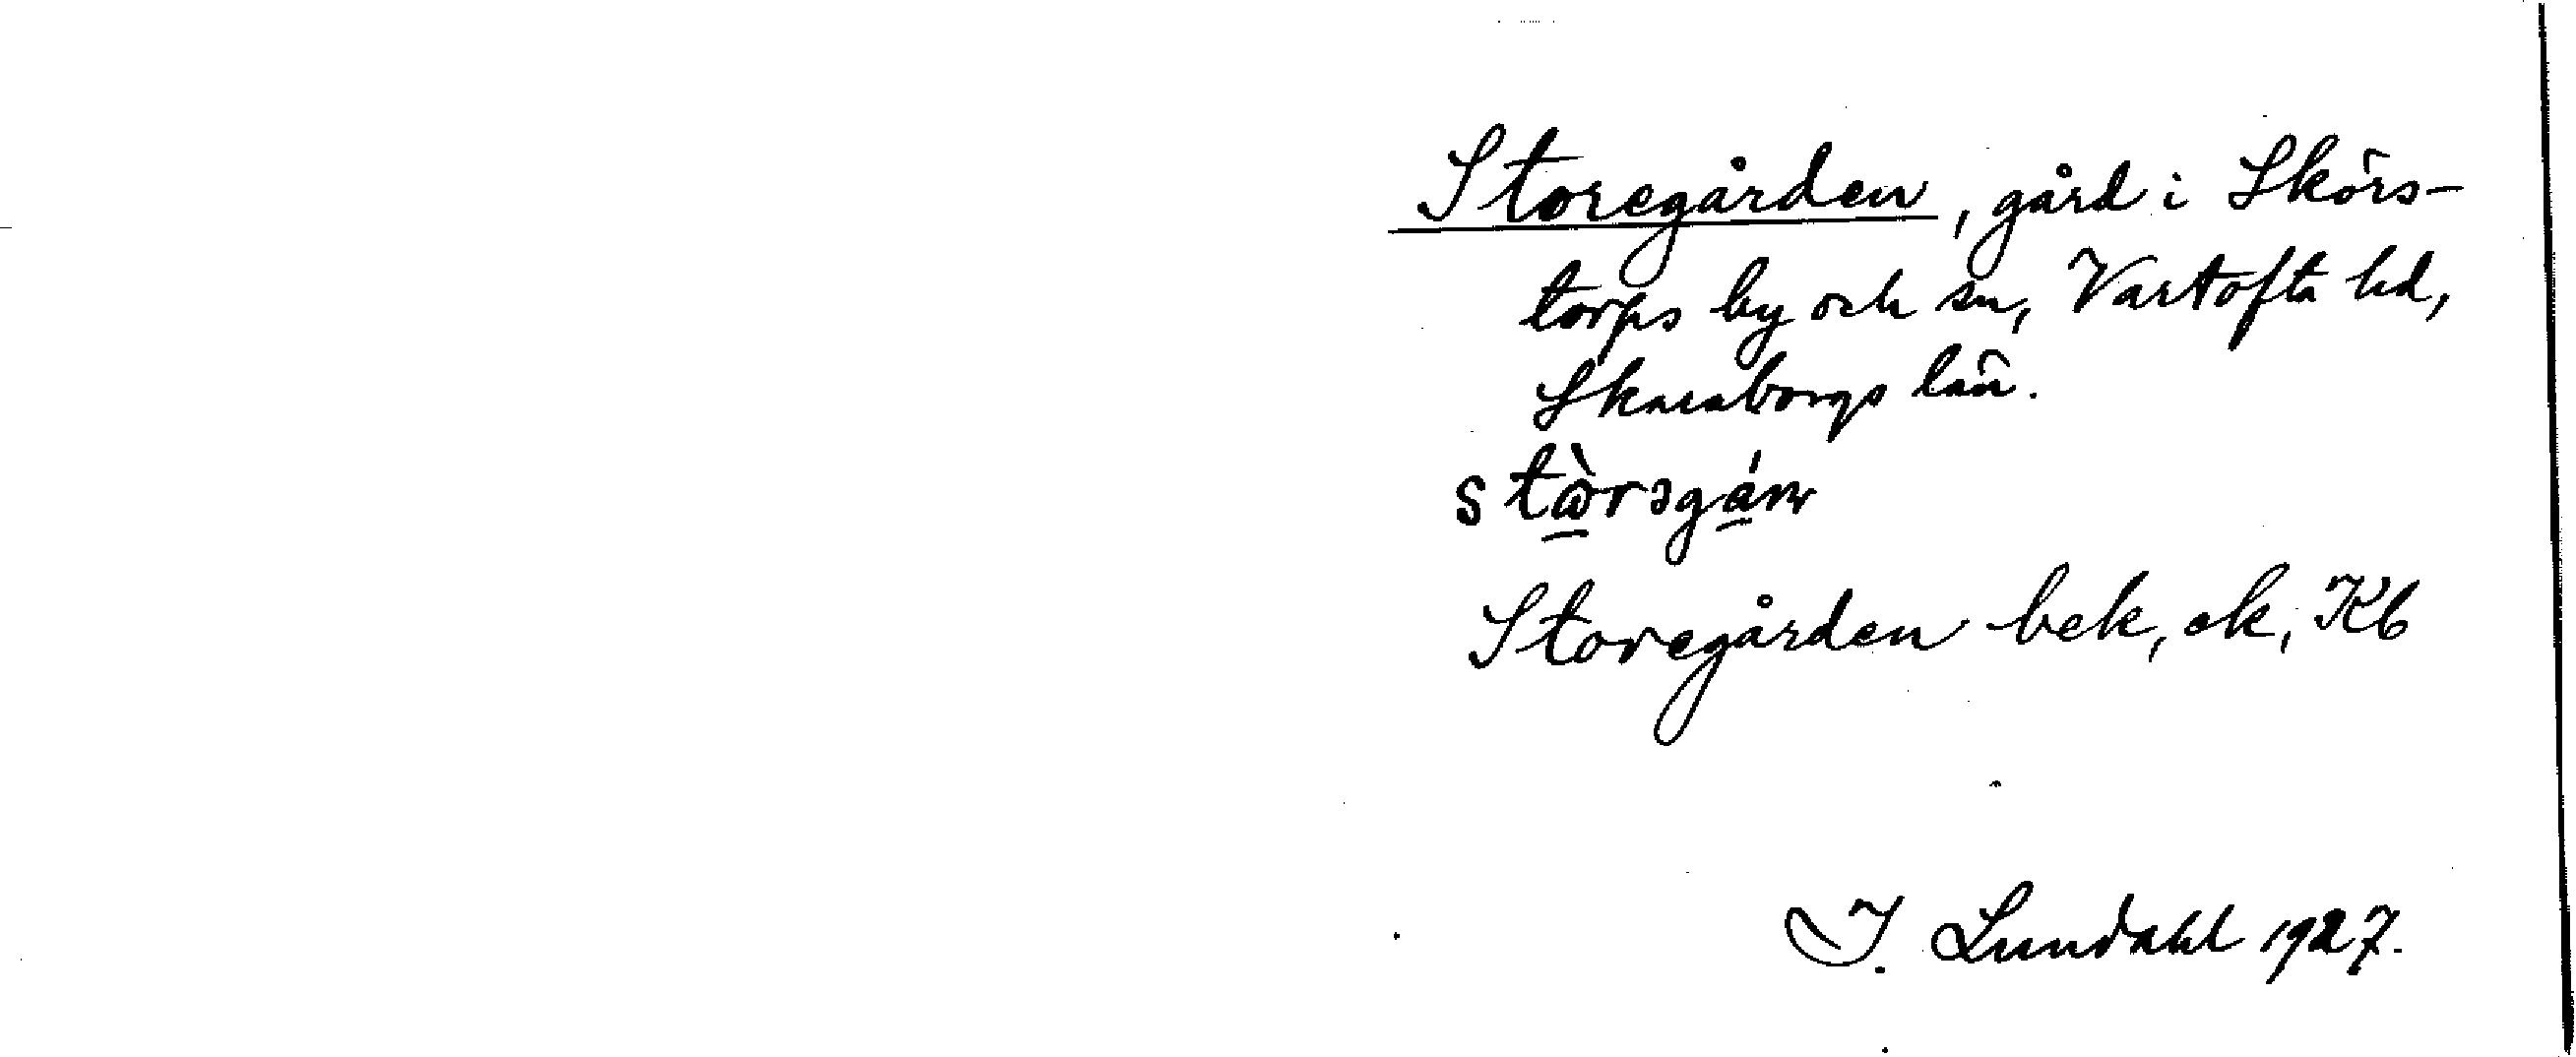 Storegården, gård i Skörs-
torps by och sn, Vartofta hd,
Skaraborgs län.
Storegården bek, ok, Kb
I. Lundahl 1927.